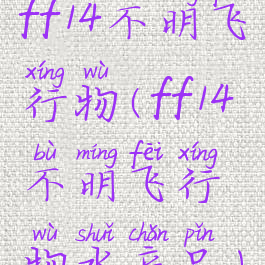 ff14不明飞
xíng wù
行物(ff14
bù míng fēi xíng
不明飞行
wù shuǐ chǎn pǐn
物水产品)